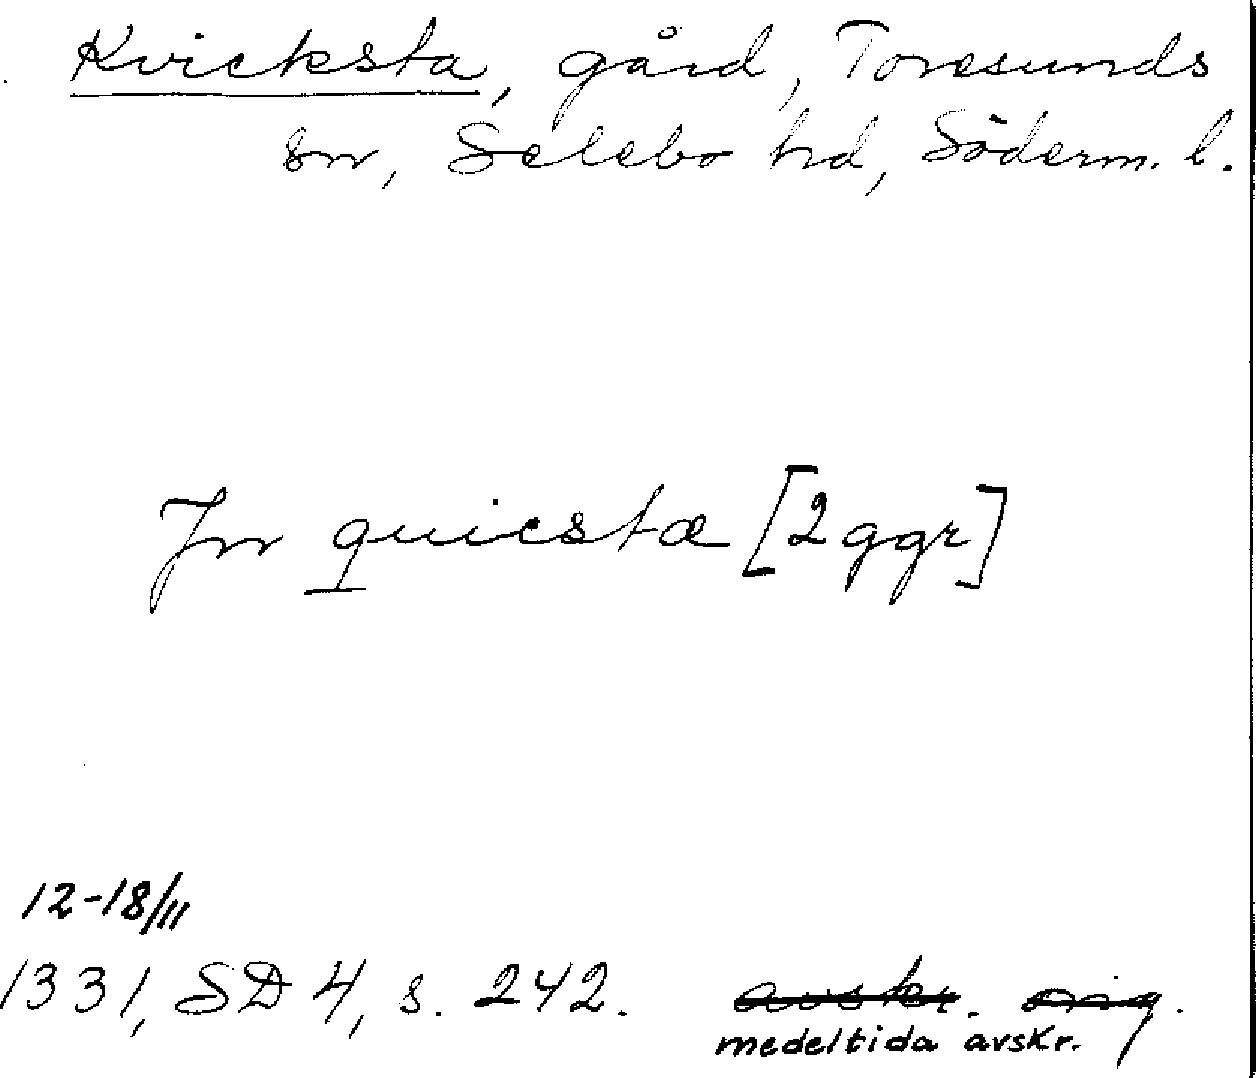 Kvicksta, gård, Toresunds
sn, Selebo hd, Söderm. l.
Jn quicstæ [2 ggr]
12-18/11
1331, SD 4, s. 242. avskr. orig.
medeltida avskr.